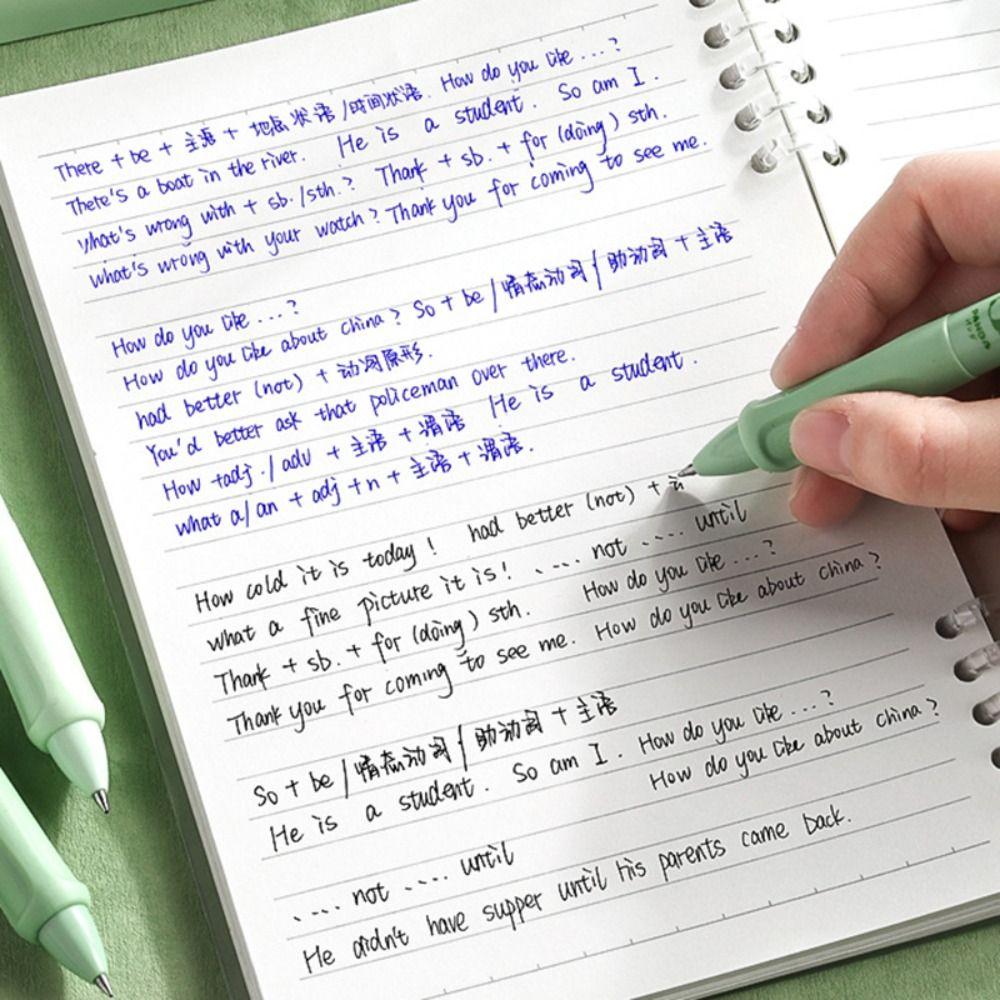 There + be + 主语 + 地点状语 / 时间状语. How do you like ...?
There's a boat in the river. He is a student. So am I.
What's wrong with + sb. / sth.? Thank + sb. + for (doing) sth.
what's wrong with your watch? Thank you for coming to see me.
How do you like ...?
How do you like about china? So + be / 情态动词 / 助动词 + 主语
had better (not) + 动词原形.
You'd better ask that policeman over there.
How + adj. / adv + 主语 + 谓语 He is a student.
what a / an + adj + n + 主语 + 谓语.
How cold it is today! had better (not) +
what a fine picture it is! ..... not ..... until
Thank + sb. + for (doing) sth. How do you like ...?
Thank you for coming to see me. How do you like about china?
So + be / 情态动词 / 助动词 + 主语
He is a student. So am I. How do you like ...?
How do you like about china?
..... not ..... until
He didn't have supper until his parents came back.
PANDA